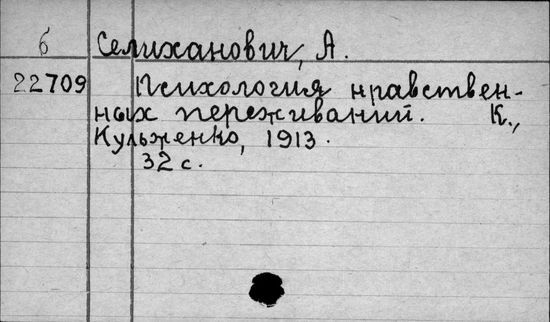 б Селиханович, А.
22709 Психология нравствен-
ных переживаний. К.,
Кульженко, 1913.
32 с.